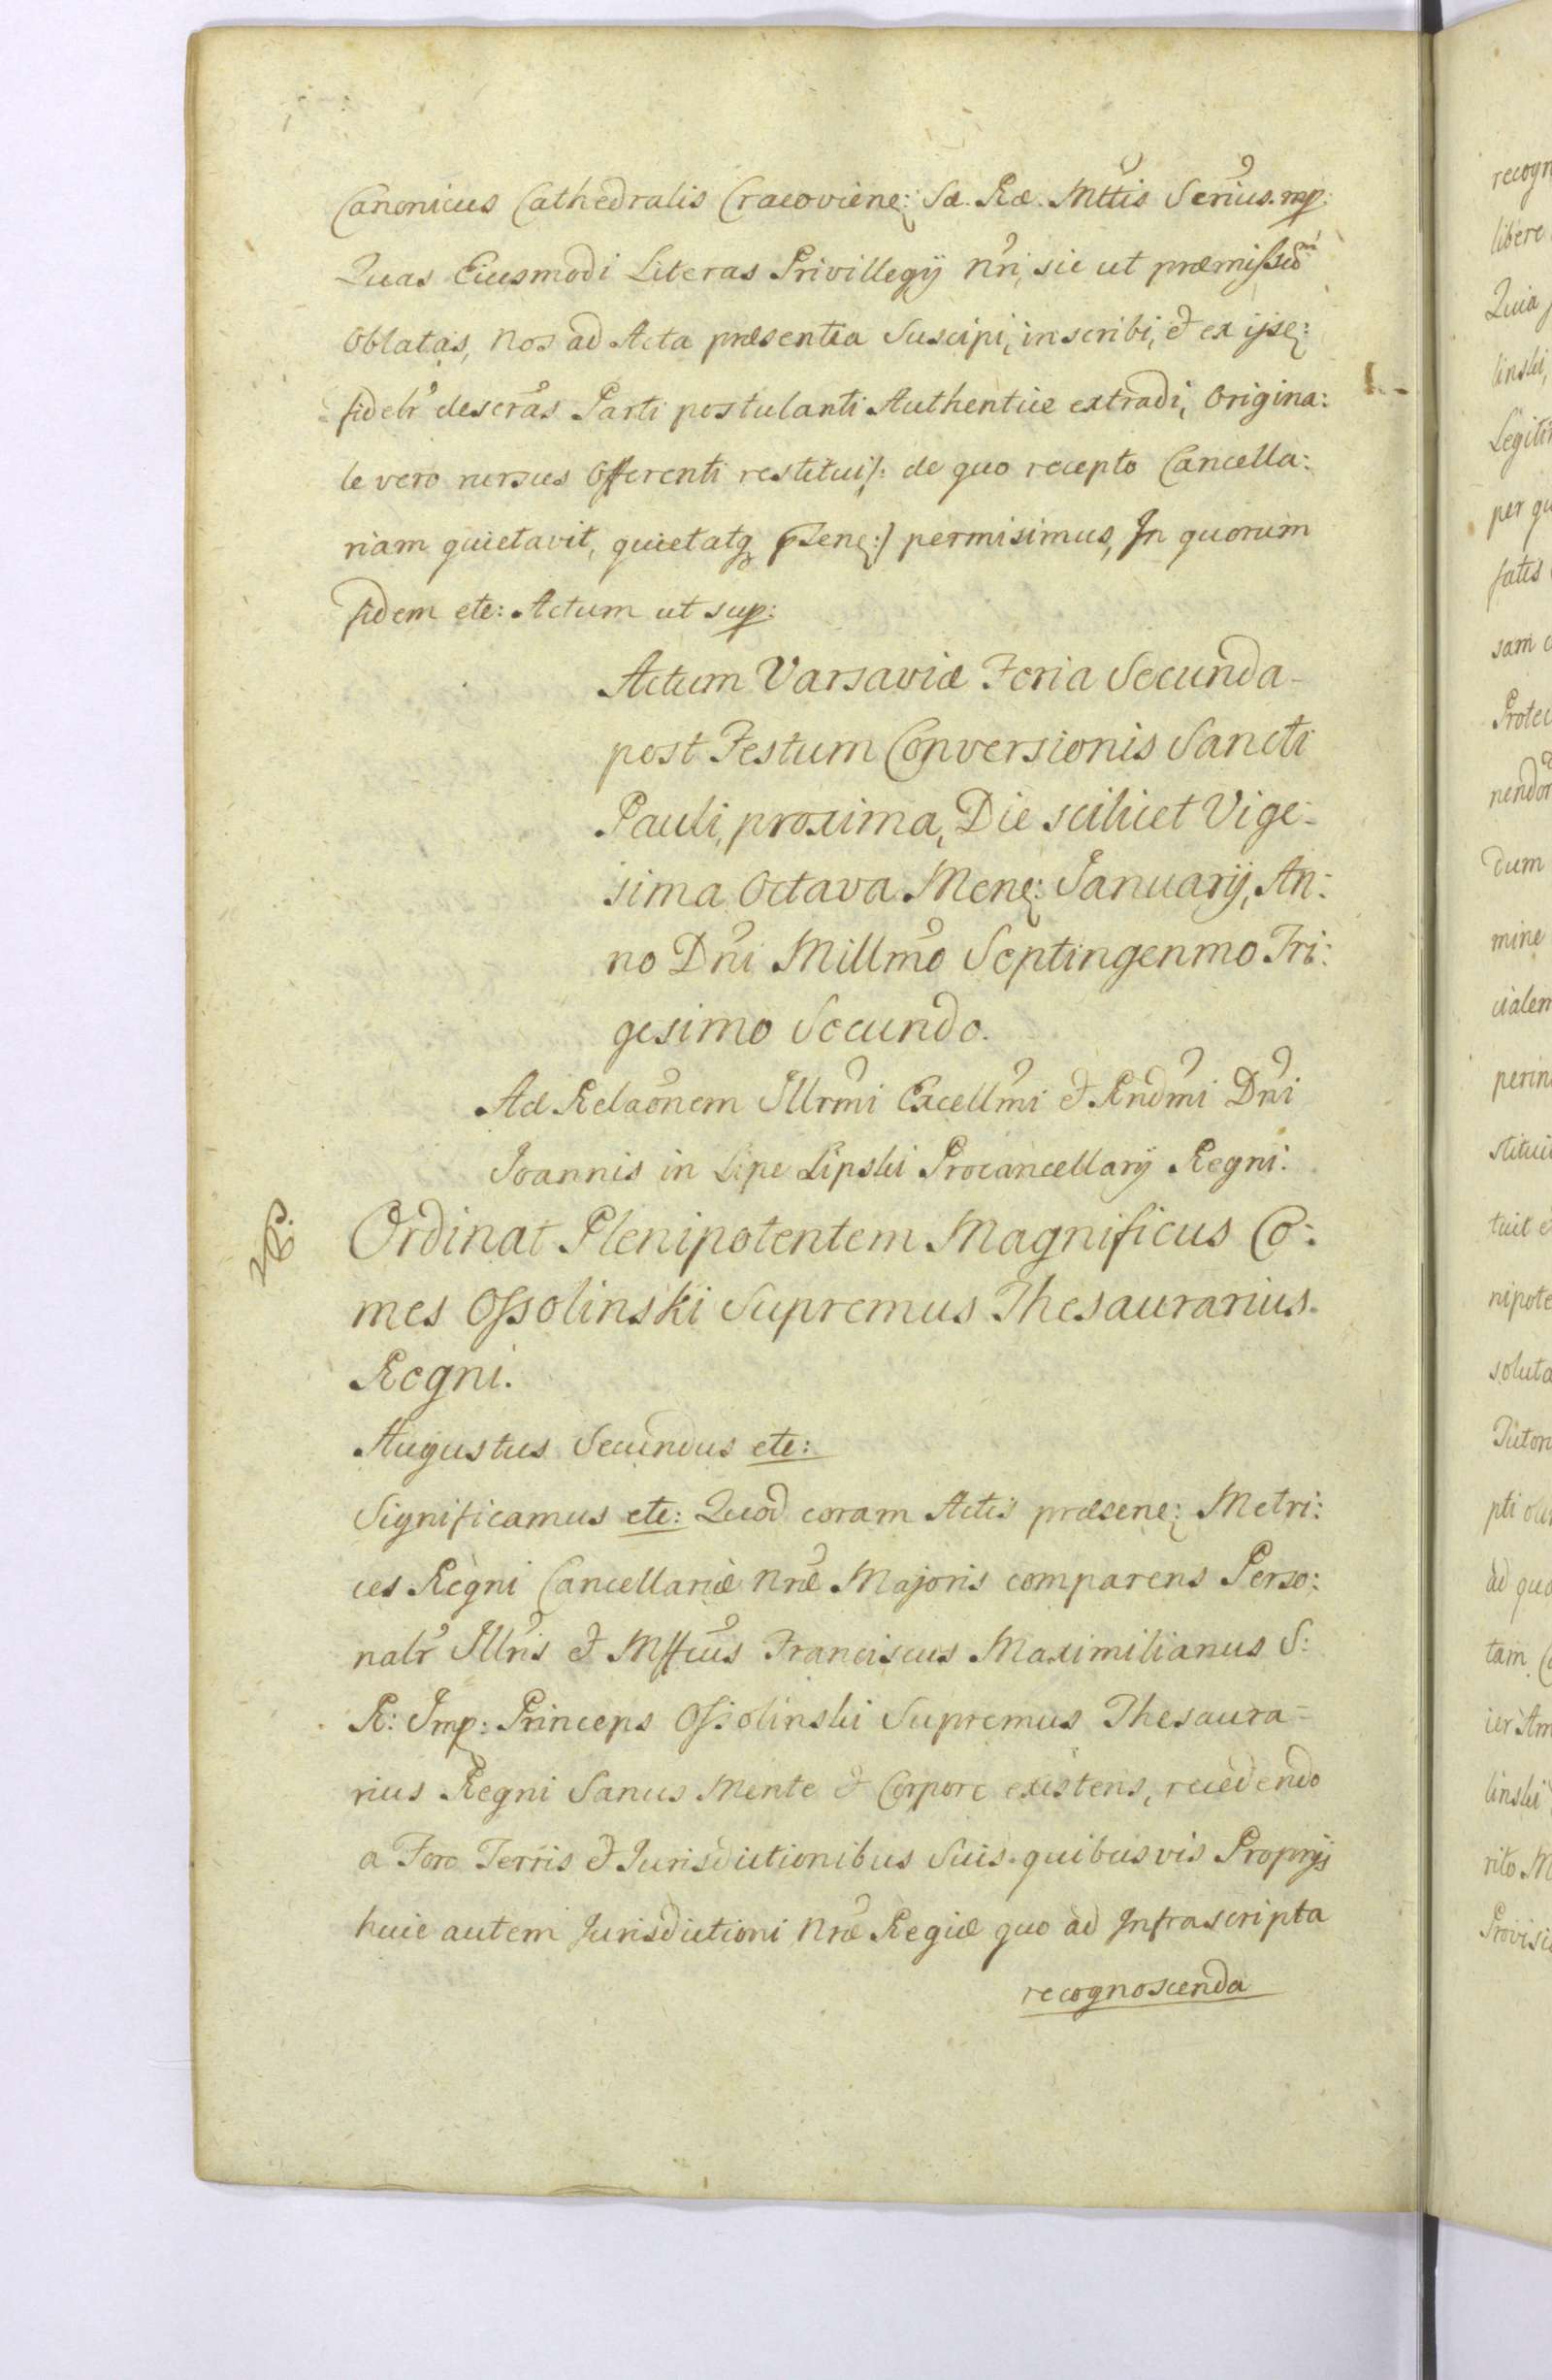 Canonicus Cathedralis Cracovienę: Sæ. Ræ. Mttis Srius. mp:
Quas Eiusmodi Literas Privillegij nri, sic ut præmissũ
Oblatas, nos ad Acta præsentia Suscipi, inscribi, & ex ijsę:
fidelr descras Parti postulanti Authentice extradi, Origina:
le vero rursus Offerenti restitui /: de quo recepto Cancella:
riam quietavit, quietatq pszenę:/ permisimus, In quorum
fidem etc: Actum ut sup:
Actum Varsaviæ Feria Secunda
post Festum Conversionis Sancti
Pauli, proxima, Die scilicet Vige-
sima Octava Menę: Januarij, An:
no Dni Millmo Septingenmo Tri:
gesimo Secundo.
Ad Relaonem Illrmi Excellmi & Rndmi Dni
Joannis in Lipe Lipski Procancellarij Regni.
Ordinat Plenipotentem Magnificus Co:
mes Ossolinski Supremus Thesaurarius
Regni.
Augustus Secundus etc:
Significamus etc: Quod coram Actis præsenę: Metri:
ces Regni Cancellariæ nræ Majoris comparens Perso:
nalr Illris & Mffcus Franciscus Maximilianus S:
R: Imp: Princeps Ossolinski Supremus Thesaura=
rius Regni Sanus Mente & Corpore existens, recedendo
a Foro Terris & Jurisdictionibus Suis quibusvis Proprijs
huic autem Jurisdictioni Nræ Regiæ quo ad Infrascripta
recognoscenda
recogn
libere
Quia
linski,
Legiti
per qu
fatis
sam
Protec
nendor
dum
mine
cialem
perin
stitui
tuit e
nipote
soluta
Tutor
pti
ad quo
tam
ier Am
linski
rito M
Provisi